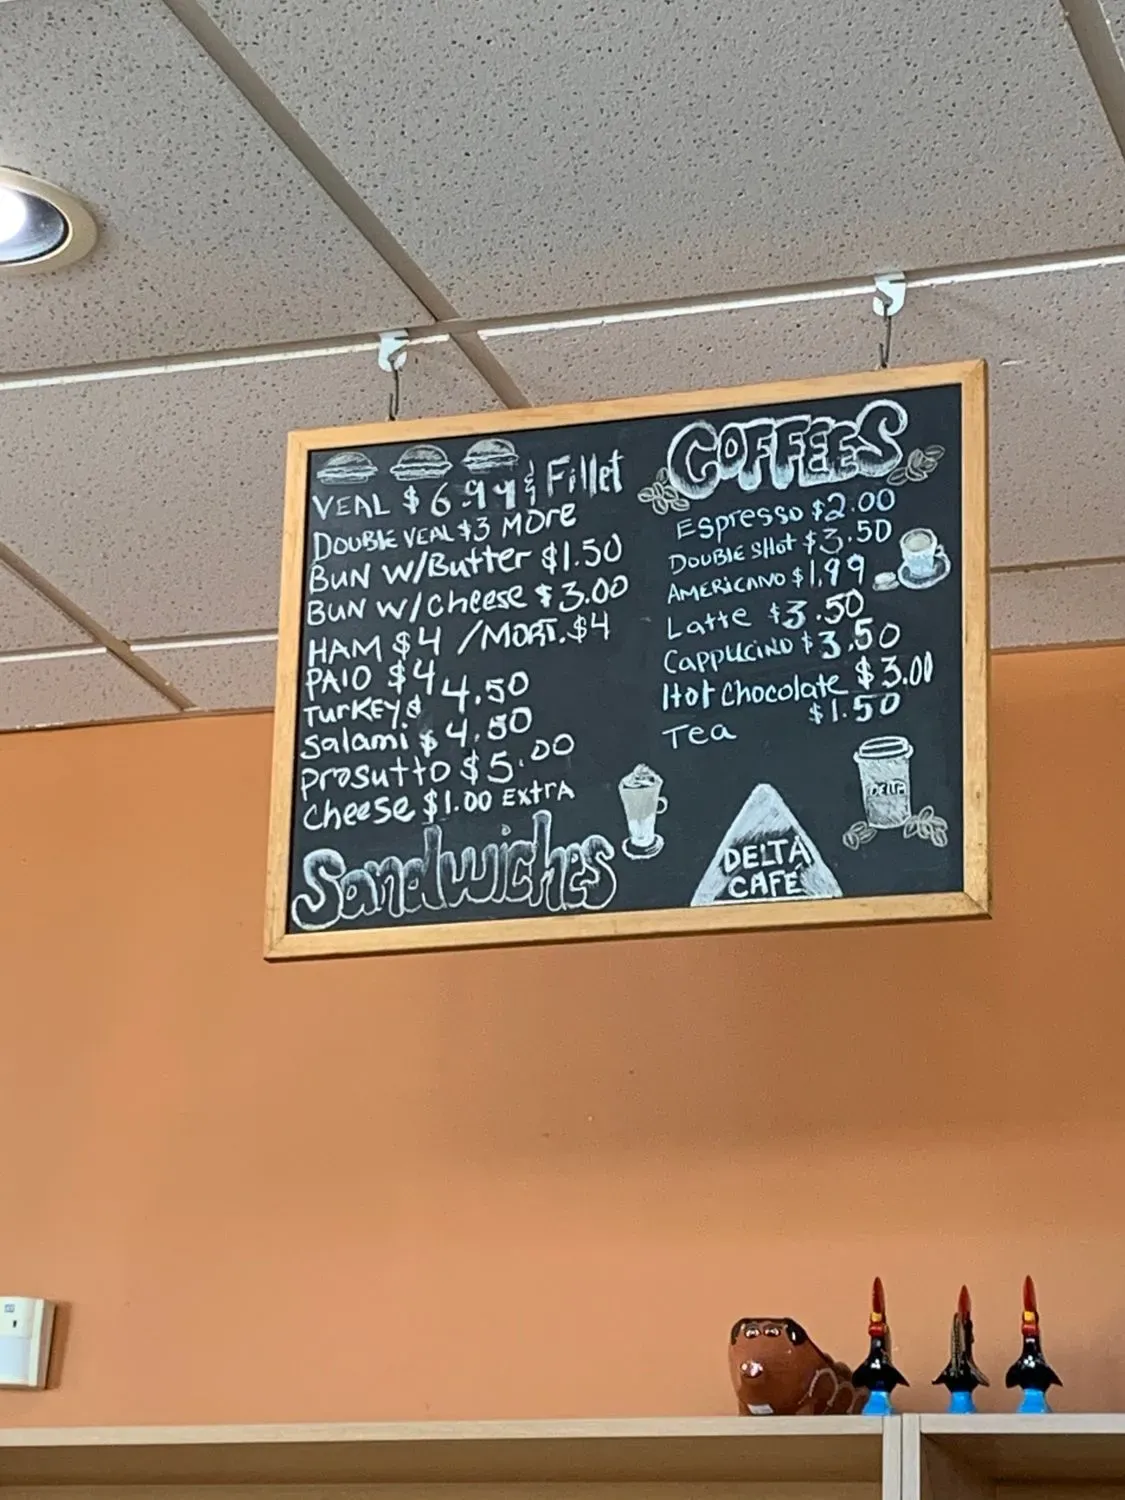 VEAL $6.99 & Fillet
DOUBLE VEAL $3 MORE
BUN W/Butter $1.50
BUN W/cheese $3.00
HAM $4 /MORT. $4
PAIO $4
TurKEY $ 4.50
Salami $ 4.50
prosutto $5.00
cheese $1.00 EXTRA
Sandwiches
COFFEES
Espresso $2.00
DOUBLE SHOT $3.50
AMERICANO $1.99
Latte $3.50
Cappucino $3.50
Hot Chocolate $3.00
Tea $1.50
DELTA
DELTA
CAFÉ